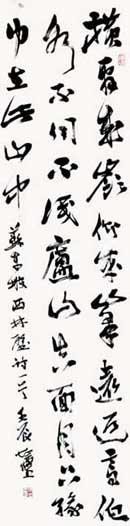 橫看成嶺側成峯遠近高低
各不同不識廬山真面目只緣
身在此山中 蘇東坡西林壁詩一首 壬辰